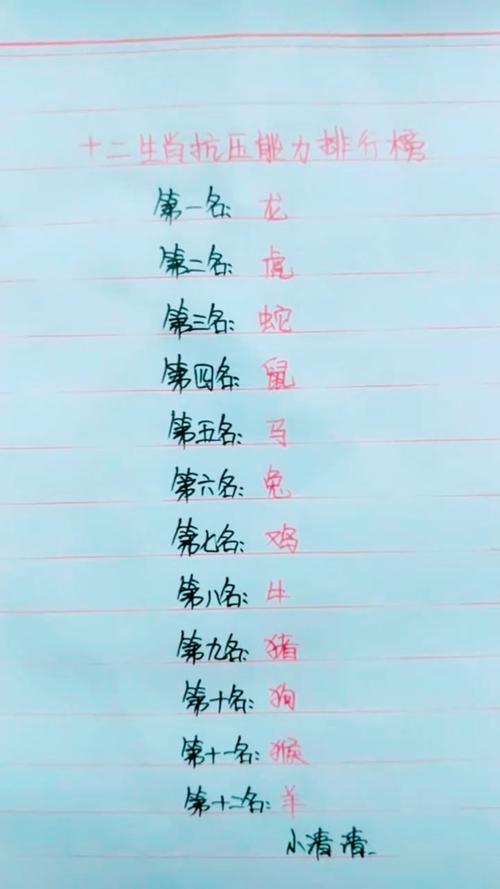 十二生肖抗压能力排行榜
第一名：龙
第二名：虎
第三名：蛇
第四名：鼠
第五名：马
第六名：兔
第七名：鸡
第八名：牛
第九名：猪
第十名：狗
第十一名：猴
第十二名：羊
小清清